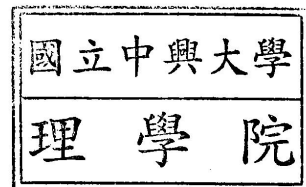 國立中興大學
理學院